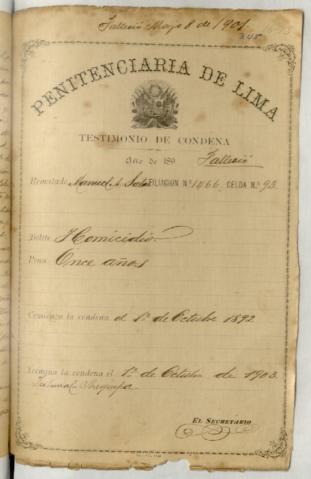 Falleció Mayo 8 de 1901
345
PENITENCIARIA DE LIMA
TESTIMONIO DE CONDENA
Año de 189 Falleció
Rematado Manuel A. Soto FILIACION N.º 1466 CELDA N.º 93
Delito Homicidio
Pena Once años
Comienza la condena el 1º de Octubre 1892
Termina la condena el 1º de Octubre de 1903.
Tribunal Arequipa
EL SECRETARIO